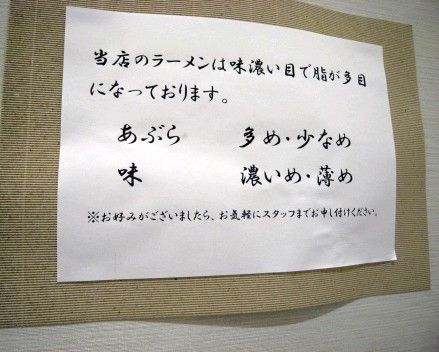 当店のラーメンは味濃い目で脂が多目
になっております。
あぶら 多め・少なめ
味 濃いめ・薄め
※お好みがございましたら、お気軽にスタッフまでお申し付けください。